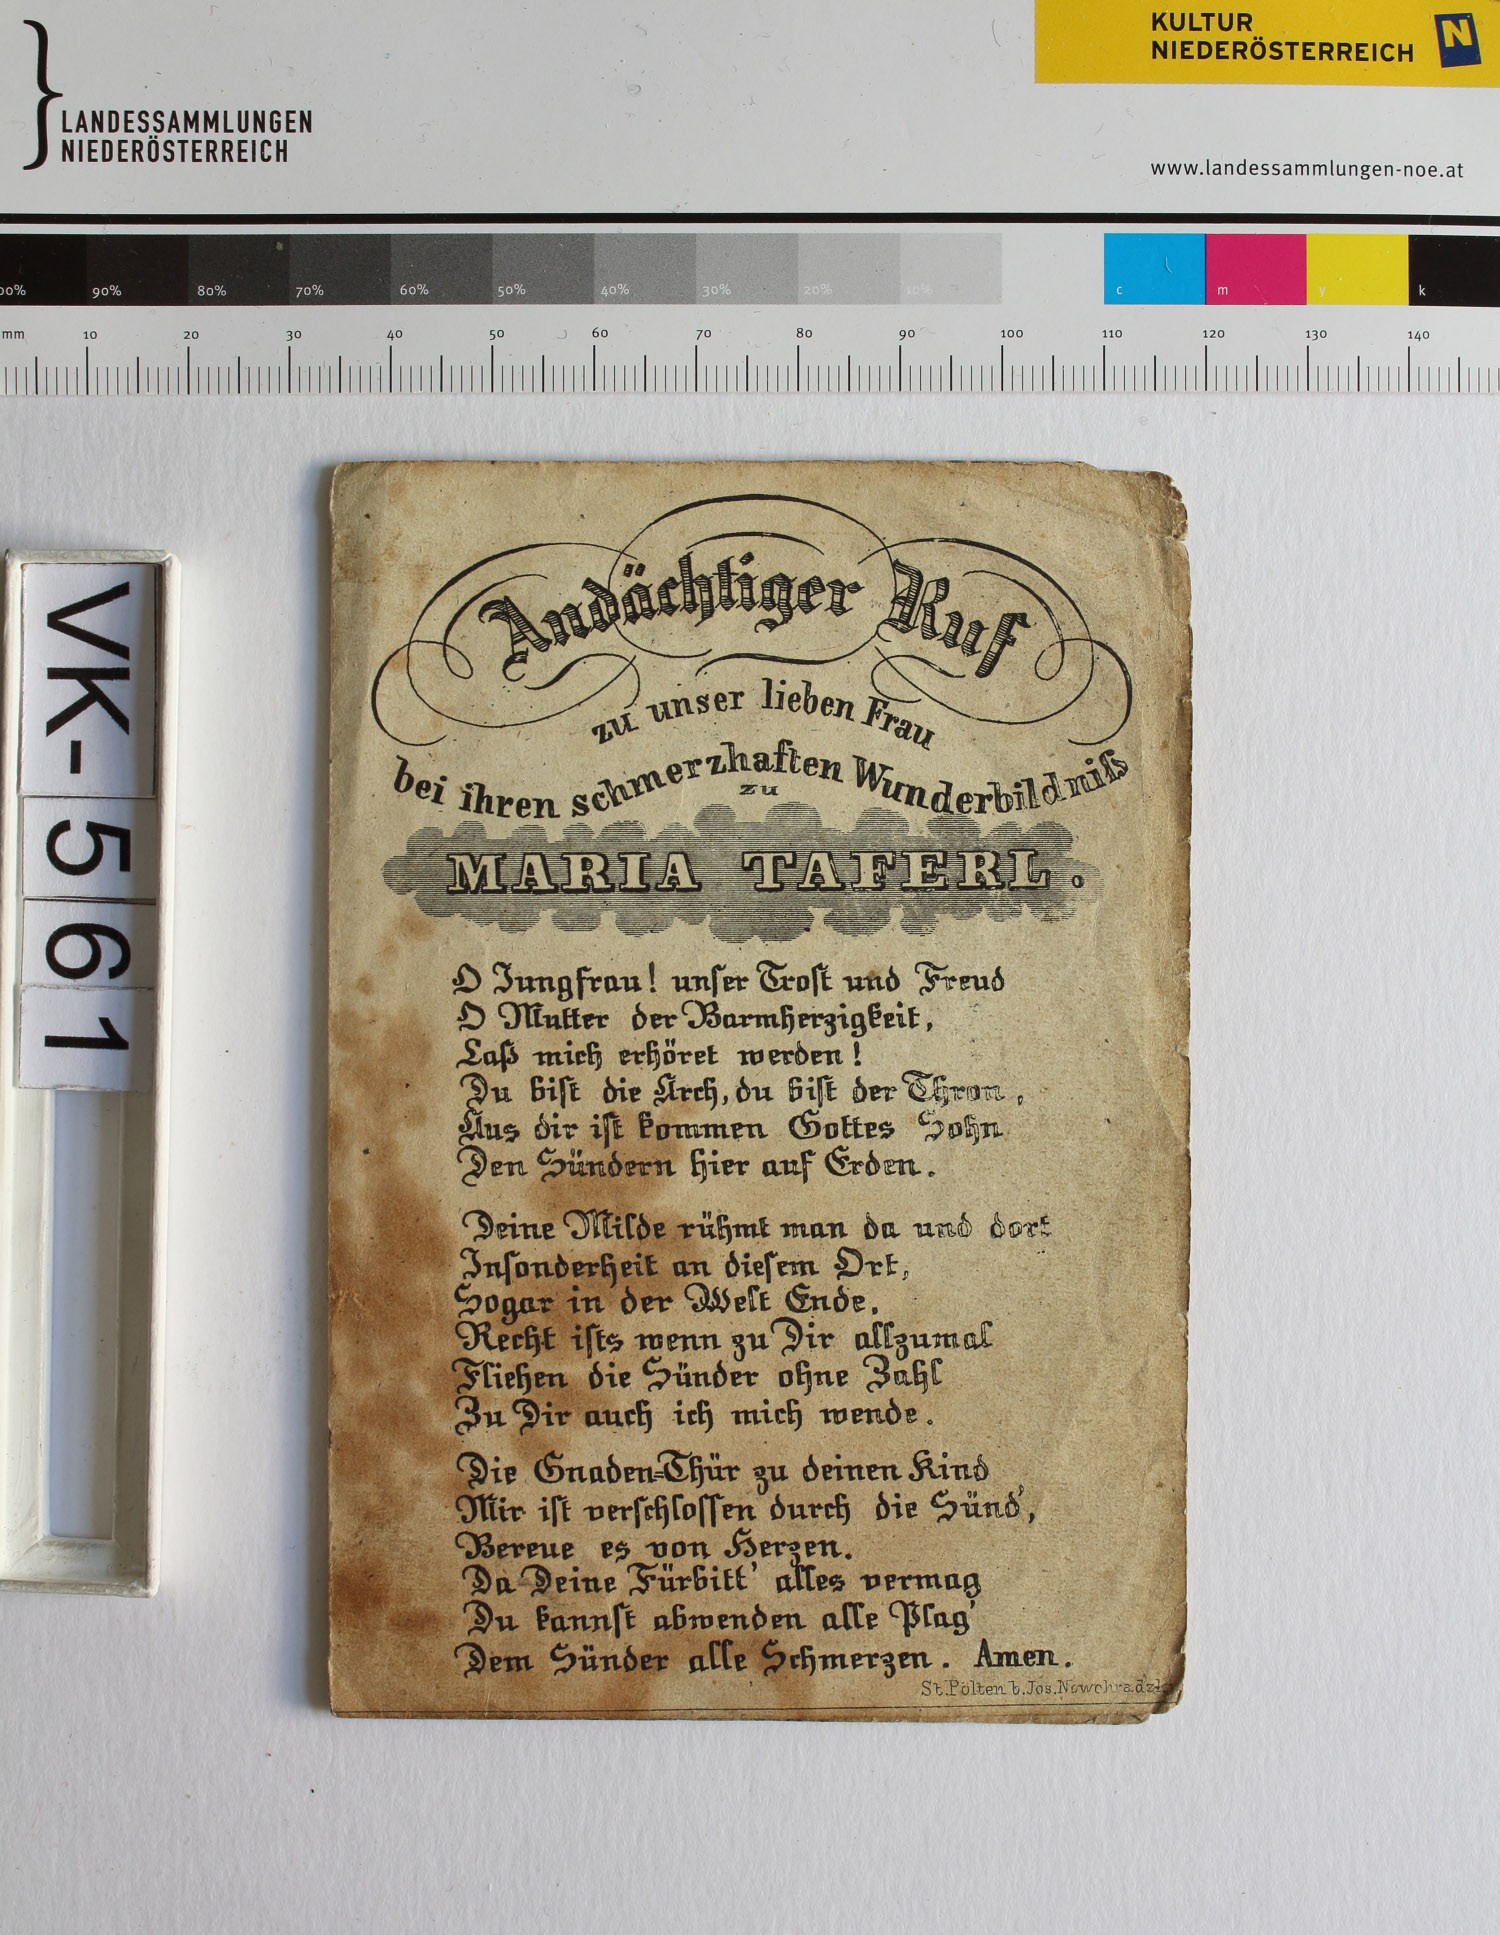 LANDESSAMMLUNGEN
NIEDERÖSTERREICH
KULTUR
NIEDERÖSTERREICH
N
www.landessammlungen-noe.at
90% 80% 70% 60% 50% 40% 30% 20% 10% c m y k
mm 10 20 30 40 50 60 70 80 90 100 110 120 130 140
VK-561
Andächtiger Ruf
zu unser lieben Frau
bei ihren schmerzhaften Wunderbildniſs
zu
MARIA TAFERL.
O Jungfrau! unſer Troſt und Freud
O Mutter der Barmherzigkeit,
Laß mich erhöret werden!
Du biſt die Arch, du biſt der Thron,
Aus dir iſt kommen Gottes Sohn
Den Sündern hier auf Erden.
Deine Milde rühmt man da und dort
Inſonderheit an dieſem Ort,
Sogar in der Welt Ende.
Recht iſts wenn zu Dir allzumal
Fliehen die Sünder ohne Zahl
Zu Dir auch ich mich wende.
Die Gnaden=Thür zu deinen Kind
Mir iſt verſchloſſen durch die Sünd',
Bereue es von Herzen.
Da Deine Fürbitt' alles vermag
Du kannſt abwenden alle Plag'
Dem Sünder alle Schmerzen. Amen.
St. Pölten b. Jos.